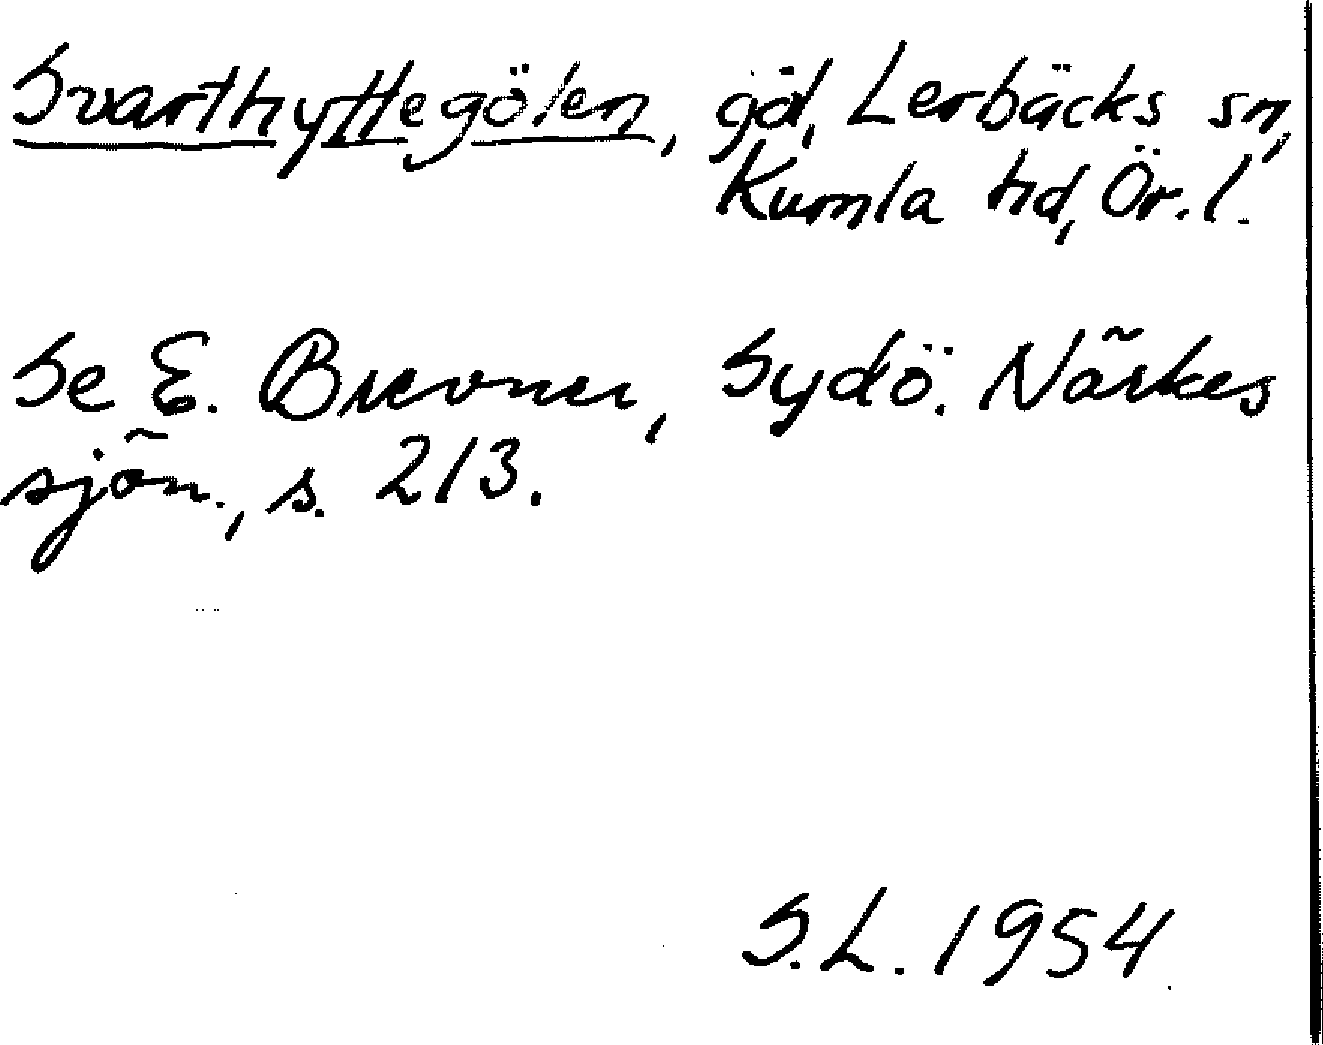 Svarthyttegölen, göl, Lerbäcks sn,
Kumla hd, Ör. l.
Se E. Brevner, Sydö. Närkes
sjön., s. 213.
S.L. 1954.